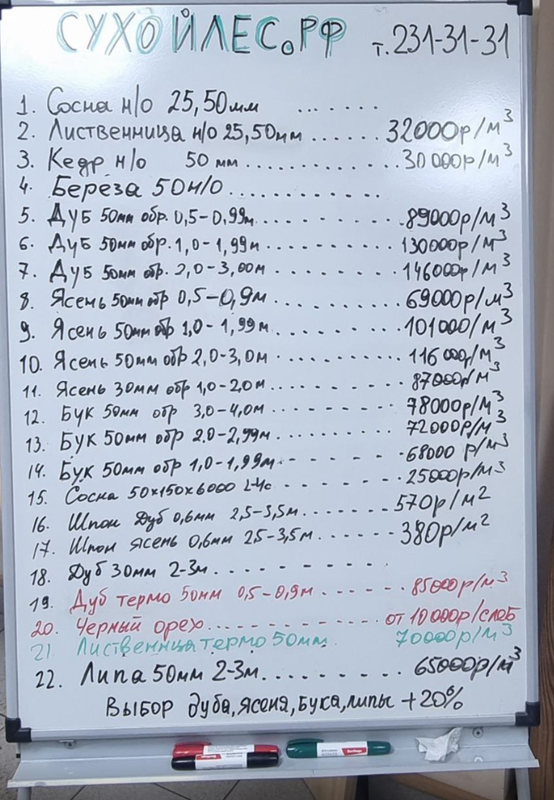 СУХОЙЛЕС.РФ т.231-31-31
1. Сосна н/о 25,50мм ........
2. Лиственница н/о 25,50мм ..... 32000р/м³
3. Кедр н/о 50мм .............. 30000р/м³
4. Береза 50н/о ..............
5. Дуб 50мм обр. 0,5-0,99м ........... 89000р/м³
6. Дуб 50мм обр. 1,0-1,99м .......... 130000р/м³
7. Дуб 50мм обр. 2,0-3,00м .......... 146000р/м³
8. Ясень 50мм обр 0,5-0,9м ......... 69000р/м³
9. Ясень 50мм обр 1,0-1,99м ......... 101000/м³
10. Ясень 50мм обр 2,0-3,0м .......... 116000р/м³
11. Ясень 30мм обр 1,0-2,0м ......... 87000р/м³
12. Бук 50мм обр 3,0-4,0м ......... 78000р/м³
13. Бук 50мм обр 2,0-2,99м .......... 72000р/м³
14. Бук 50мм обр 1,0-1,99м ......... 68000 р/м³
15. Сосна 50х150х6000 ......... 25000р/м³
16. Шпон Дуб 0,6мм 2,5-3,5м ........ 570р/м²
17. Шпон ясень 0,6мм 2,5-3,5м ........ 380р/м²
18. Дуб 30мм 2-3м ..........
19. Дуб термо 50мм 0,5-0,9м ........ 85000р/м³
20. Черный орех .............. от 10000р/слэб
21 Лиственница термо 50мм 70000р/м³
22. Липа 50мм 2-3м ........... 65000р/м³
Выбор дуба, ясеня, бука, липы +20%